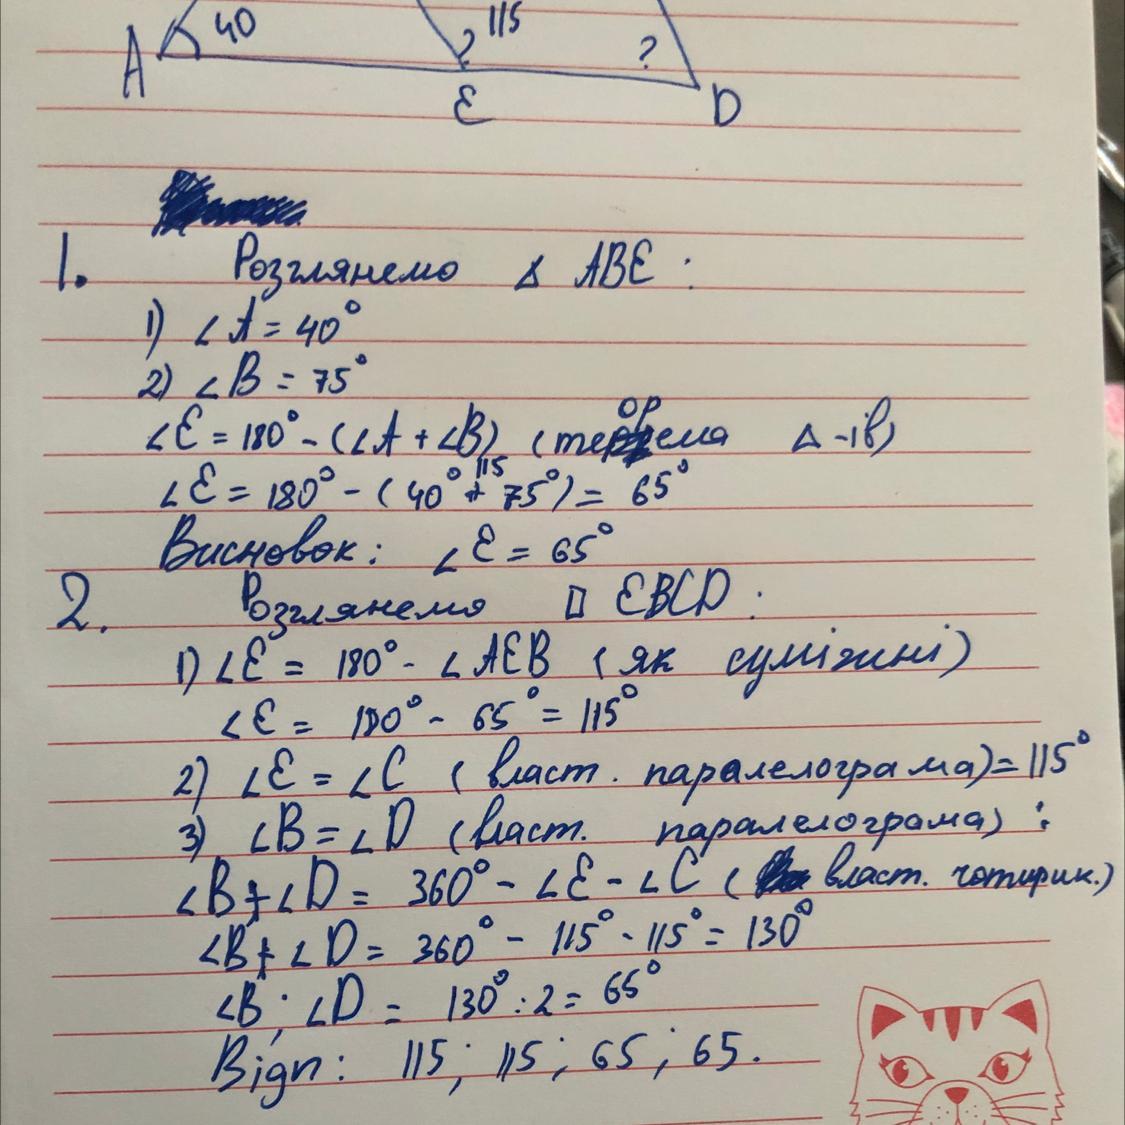 40
115
?
?
A
E
D
1. Розглянемо Δ ABE:
1) ∠A = 40°
2) ∠B = 75°
∠E = 180° - (∠A + ∠B) (теорема Δ-ів)
115
∠E = 180° - (40° + 75°) = 65°
Висновок: ∠E = 65°
2. Розглянемо □ EBCD:
1) ∠E = 180° - ∠AEB (як суміжні)
∠E = 180° - 65° = 115°
2) ∠E = ∠C (власт. паралелограма) = 115°
3) ∠B = ∠D (власт. паралелограма):
∠B + ∠D = 360° - ∠E - ∠C (власт. чотирик.)
∠B + ∠D = 360° - 115° - 115° = 130°
∠B; ∠D = 130° : 2 = 65°
Відп: 115; 115; 65; 65.